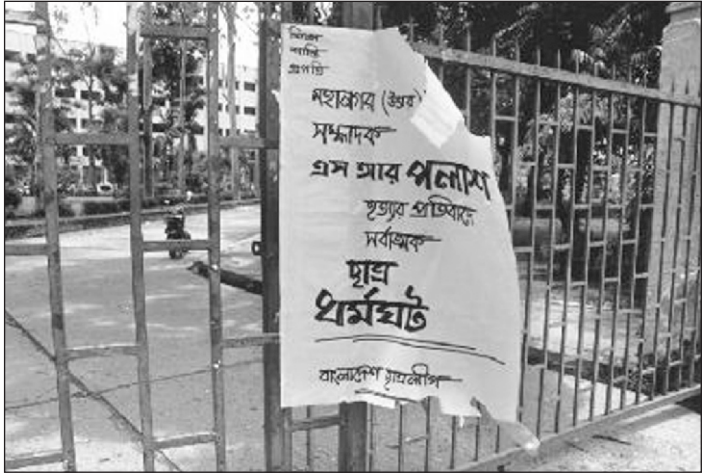 শিক্ষা
শান্তি
প্রগতি
মহানগর (উত্তর)
সম্পাদক
এস আর পলাশ
হত্যার প্রতিবাদে
সর্বাত্মক
ছাত্র
ধর্মঘট
বাংলাদেশ ছাত্রলীগ